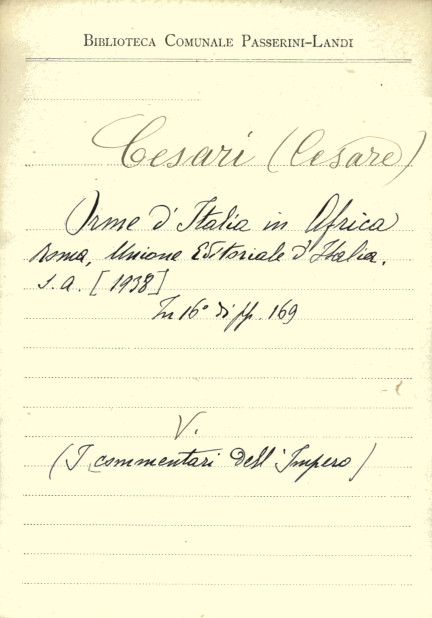 BIBLIOTECA COMUNALE PASSERINI-LANDI
Cesari (Cesare)
Orme d'Italia in Africa
Roma, Unione Editoriale d'Italia,
s.a. [1938]
In 16° di pp. 169
V.
(I commentari dell'Impero)